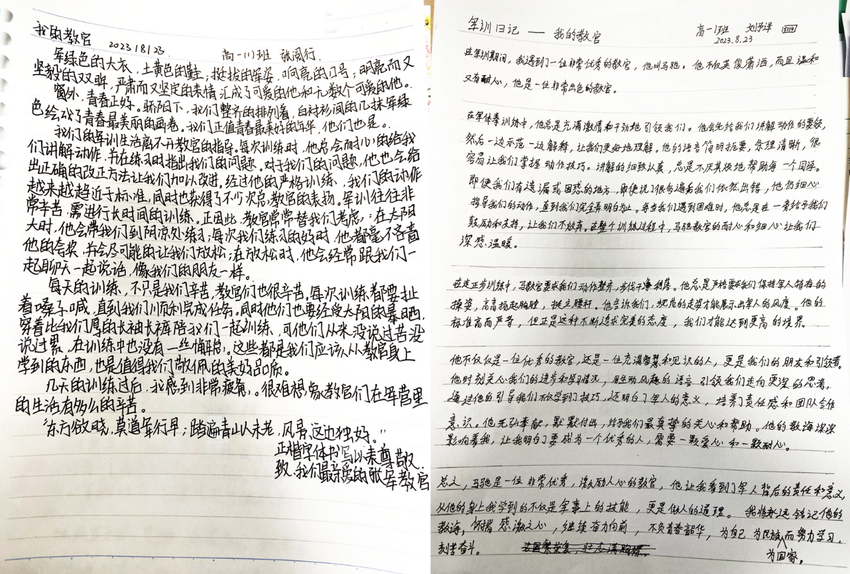 我的教官
2023.8.23 高一(1)班 张闻行
军绿色的大衣,土黄色的鞋;挺拔的军姿,响亮的口号;明亮而又
坚毅的双眸,严肃而又坚定的表情汇成了可爱的他和无数个可爱的他。
窗外,青春正好。骄阳下,我们整齐的排列着,白衬衫间的几抹军绿
色绘成了青春最美丽的画卷。我们正值青春最美好的年华,他们也是。
我们的军训生活离不开教官的指导。每次训练时,他总会耐心的给我
们讲解动作,并在练习时指出我们的问题。对于我们的问题,他也会给
出正确的改正方法让我们加以改进。经过他的严格训练,我们的动作
越来越趋近于标准,同时也获得了不少次总教官的表扬。军训往往非
常辛苦,需进行长时间的训练。正因此,教官常常替我们考虑:在太阳
大时,他会带我们到阴凉处练习;每次我们练习的好时,他都毫不吝啬
他的夸奖,并会尽可能的让我们放松;在放松时,他会经常跟我们一
起聊天一起说话,像我们的朋友一样。
每天的训练,不只是我们辛苦,教官们也很辛苦。每次训练都要扯
着嗓子喊,直到我们顺利完成任务。同时他们也要经受太阳的暴晒,
穿着比我们厚的长袖长裤陪我们一起训练,可他们从来没说过苦没
说过累,在训练中也没有一丝懈怠。这些都是我们应该从教官身上
学到的东西,也是值得我们敬佩的美好品质。
几天的训练过后,我感到非常疲惫。很难想象教官们在军营里
的生活有多么的辛苦。
“东方欲晓,莫道君行早;踏遍青山人未老,风景这边独好。”
正楷字体书写以表尊敬
致:我们最亲爱的耿军教官
军训日记 —— 我的教官 高一1班
2023.8.23
在军训期间,我遇到了一位非常优秀的教官,他叫马驰。他不仅英俊潇洒,而且温和
又有耐心,他是一位非常出色的教官。
在军体拳训练中,他总是充满激情和干劲地引领我们。他会先给我们讲解动作的要领,
然后一边示范一边解释,让我们更好地理解。他的语言简明扼要,条理清晰,很
容易让我们掌握动作技巧。讲解的细致认真,总是不厌其烦地帮助每一个同学。
即使我们有遗漏或困惑的地方,即使说了很多遍我们依然出错,他仍细心
指导我们的动作,直到我们完全弄明白为止。每当我们遇到困难时,他总是在一旁给予我们
鼓励和支持,让我们不放弃。在整个训练过程中,马驰教官的耐心和细心让我们
深感温暖。
在走正步训练中,马教官要求我们动作整齐,步伐干净利落。他总是严格要求我们保持军人特有的
操姿,高高抬起胸膛,挺立腰杆。他告诉我们,规范的走姿才能展示出军人的风度。他的
标准高而严苛,但正是这种不断追求完美的态度,我们才能达到更高的境界。
他不仅仅是一位优秀的教官,还是一位充满智慧和见识的人,更是我们的朋友和引领者。
他时刻关心我们的进步和学习情况,用生动风趣的语言引领我们走向更深的思考。
通过他的引导我们不仅学到了技巧,还明白了军人的意义,培养了责任感和团队合作
意识。他无私奉献,默默付出,给予我们最真挚的关心和帮助。他的教诲深深
影响着我,让我明白了要成为一个优秀的人,需要一颗爱心和一颗耐心。
总之,马驰是一位非常优秀,激励人心的教官,他让我看到了军人背后的责任和意义
从他的身上我学到的不仅是军事上的技能,更是做人的道理。我将永远铭记他的
教诲,怀揣感激之心,继续奋力向前,不负青春韶华,为自己为民族而努力学习,
刻苦奋斗。
为国家。